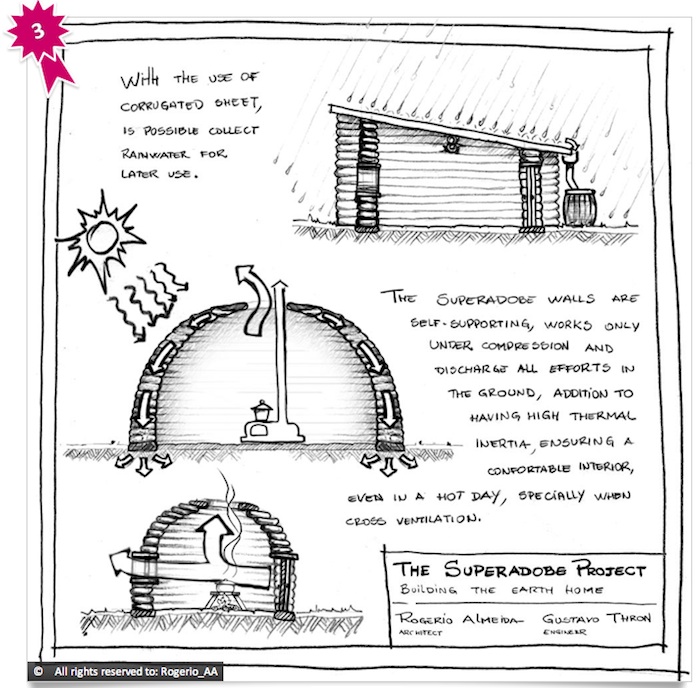 3
WITH THE USE OF
CORRUGATED SHEET,
IS POSSIBLE COLLECT
RAINWATER FOR
LATER USE.
THE SUPERADOBE WALLS ARE
SELF-SUPPORTING, WORKS ONLY
UNDER COMPRESSION AND
DISCHARGE ALL EFFORTS IN
THE GROUND, ADDITION TO
HAVING HIGH THERMAL
INERTIA, ENSURING A
CONFORTABLE INTERIOR,
EVEN IN A HOT DAY, SPECIALLY WHEN
CROSS VENTILATION.
THE SUPERADOBE PROJECT
BUILDING THE EARTH HOME
ROGERIO ALMEIDA GUSTAVO THRON
ARCHITECT ENGINEER
© All rights reserved to: Rogerio_AA